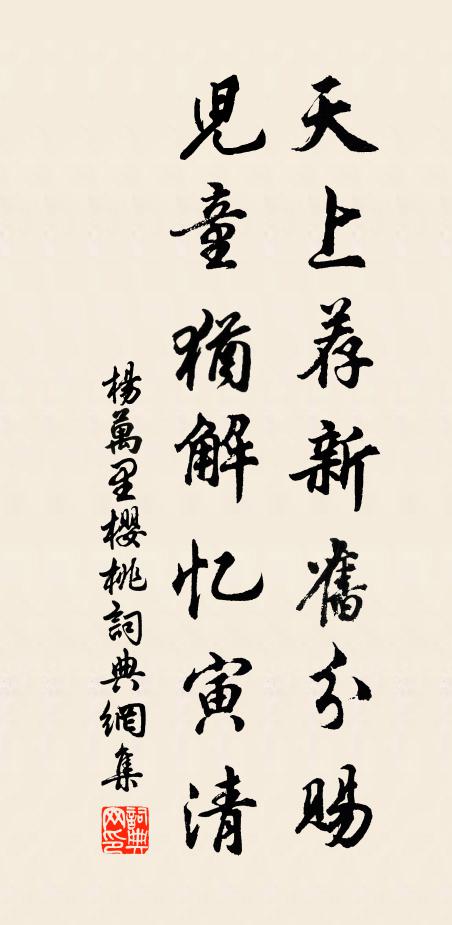 天上荐新舊分赐
児童猶解忆寅清
楊萬里櫻桃詞典網集
詞典网印